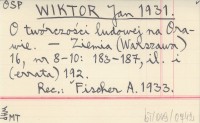 OSP
WIKTOR Jan 1931.
O twórczości ludowej na Ora-
wie. — Ziemia (Warszawa)
16, nr 8-10: 183-187, il. i
(errata) 192.
Rec.: Fischer A. 1933.
MT